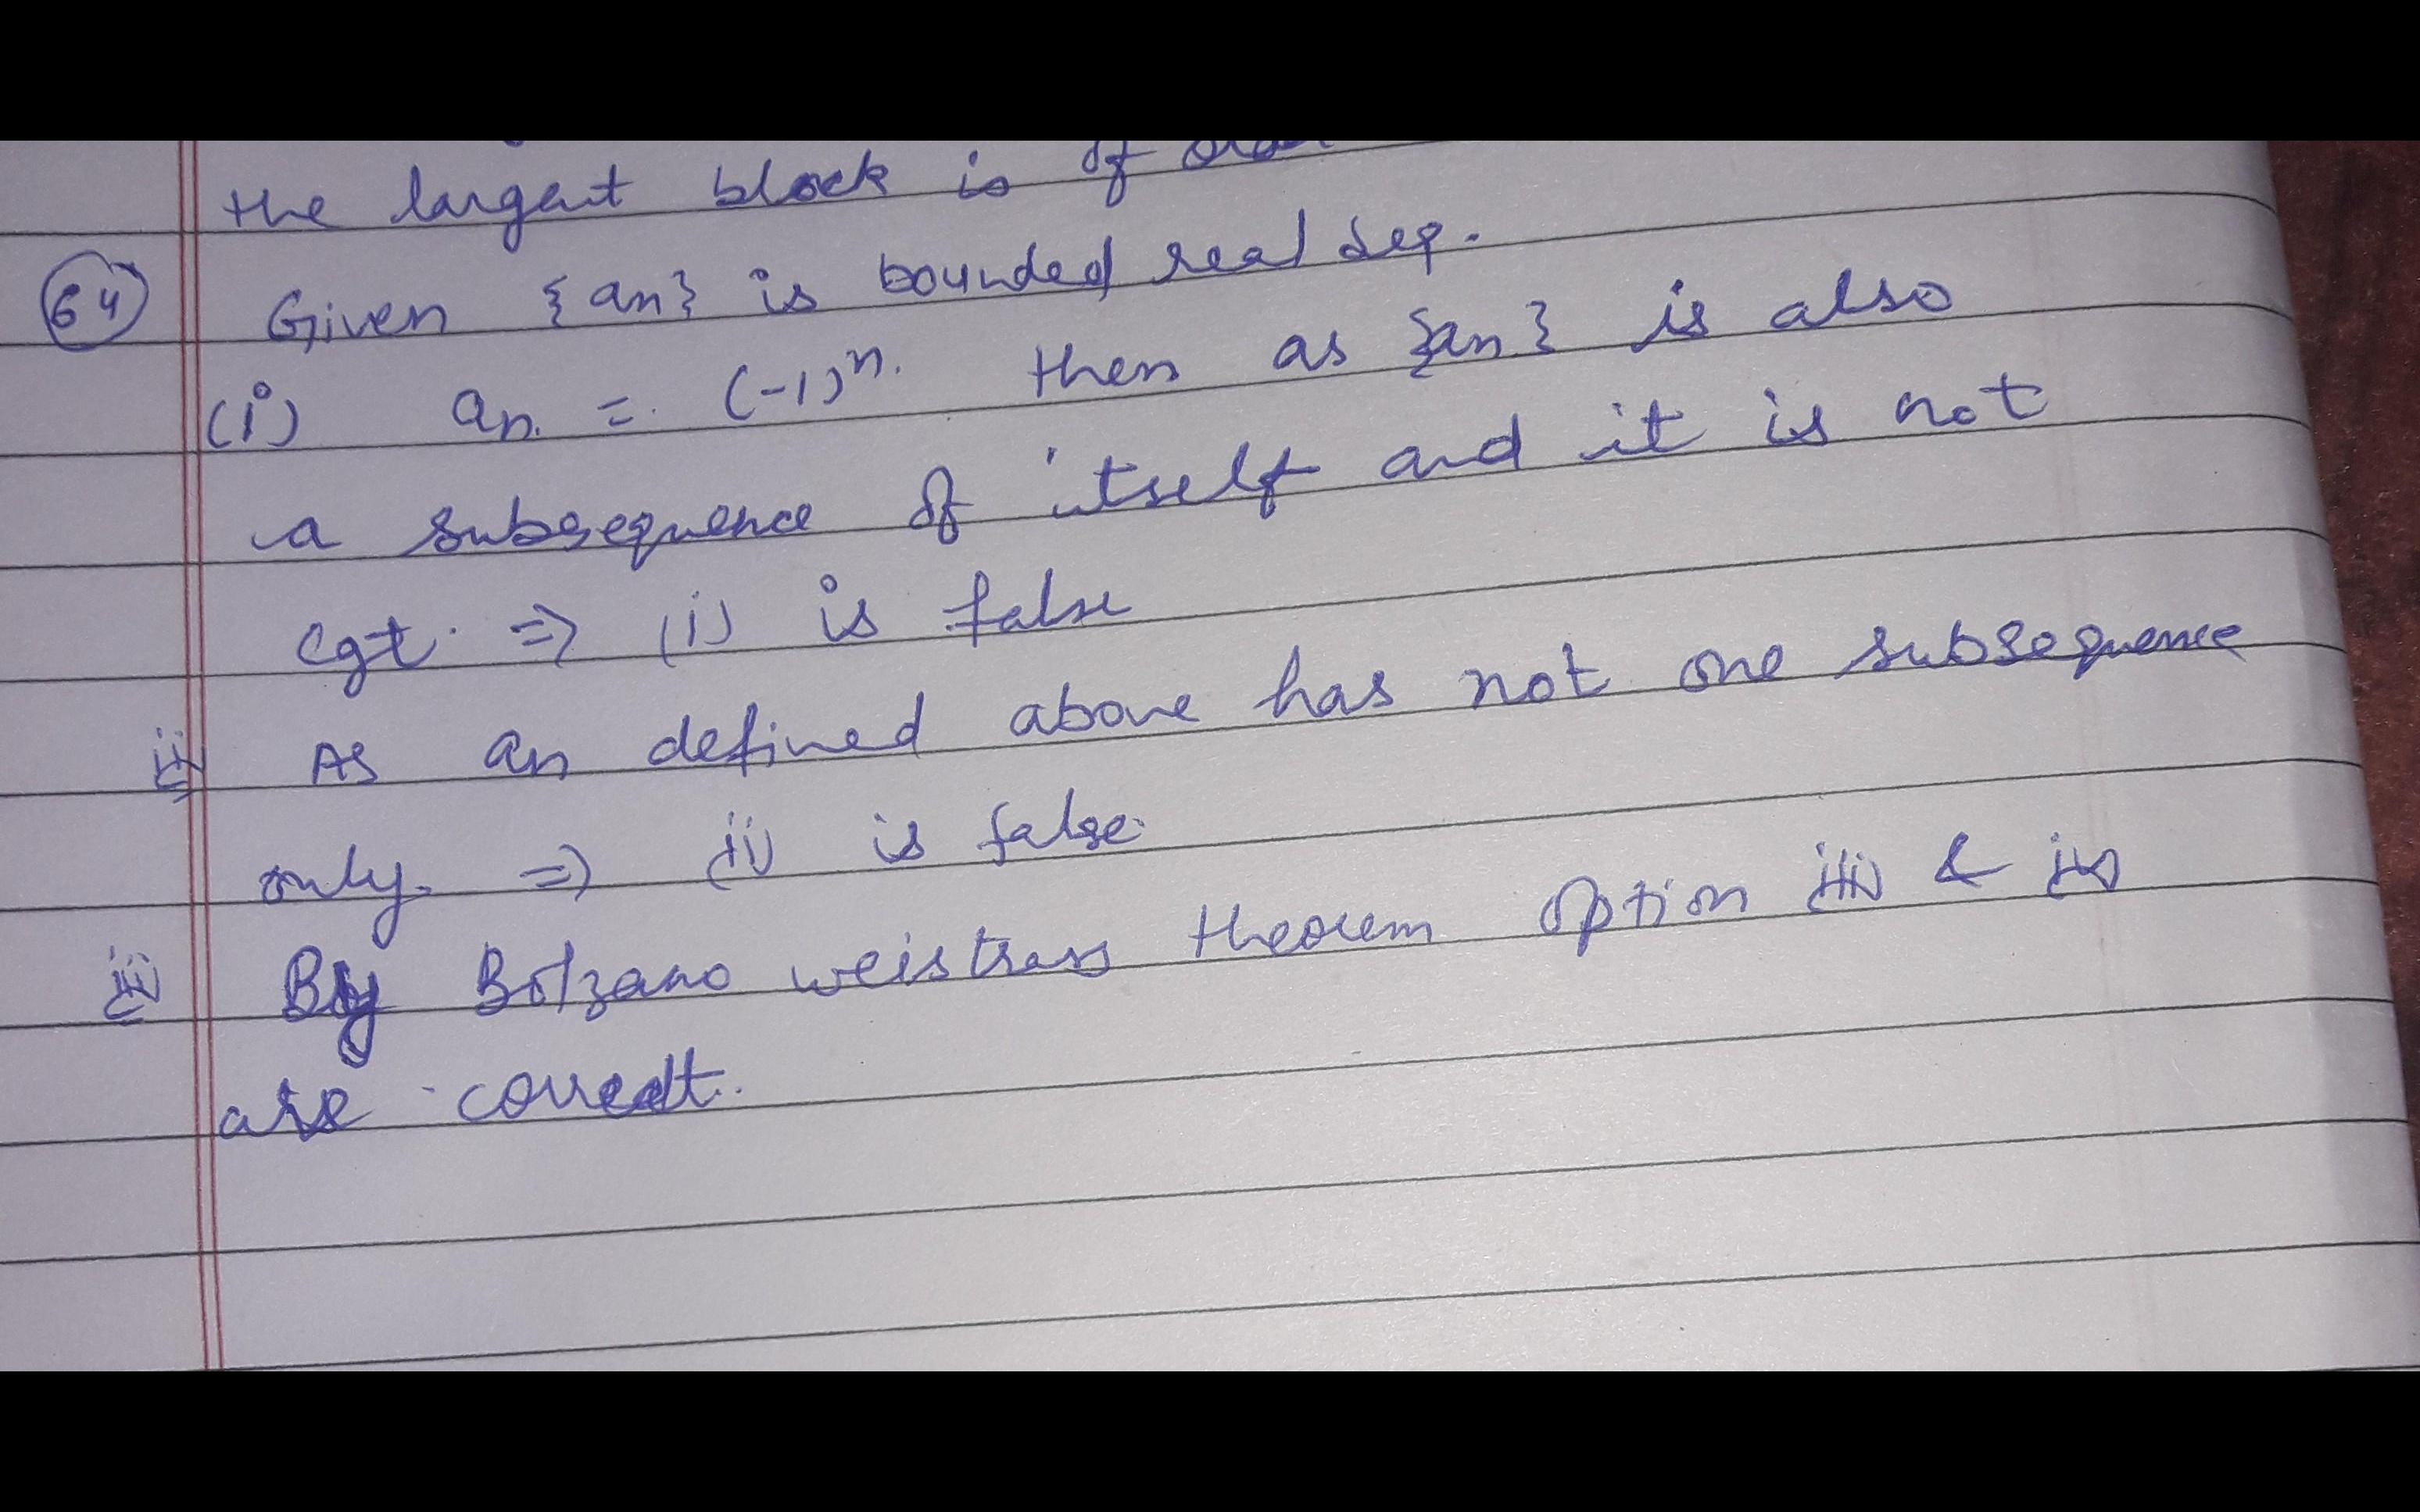 the largest block is of
64 Given {an} is bounded real seq.
(i) an = (-1)^n. then as {an} is also
a subsequence of itself and it is not
cgt. => (i) is false
ii As an defined above has not one subsequence
only. => ii) is false.
iii By Bolzano weistrass theorem option iii) & iv)
are correct.